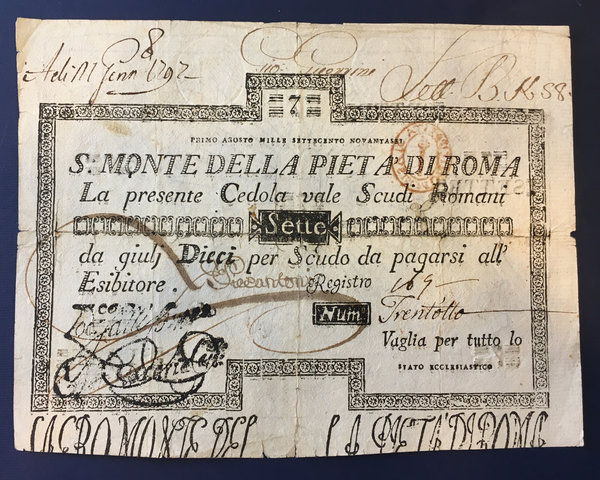 Adi 11 Genn 1797
8
Lett. B. No 58
7
PRIMO AGOSTO MILLE SETTECENTO NOVANTASEI
S. MONTE DELLA PIETA' DI ROMA
La presente Cedola vale Scudi Romani
Sette
da giulj Dieci per Scudo da pagarsi all'
Esibitore. Registro 169
Num Trent'otto
Vaglia per tutto lo
STATO ECCLESIASTICO
SACRO MONTE DEL LA PIETÀ DI ROMA